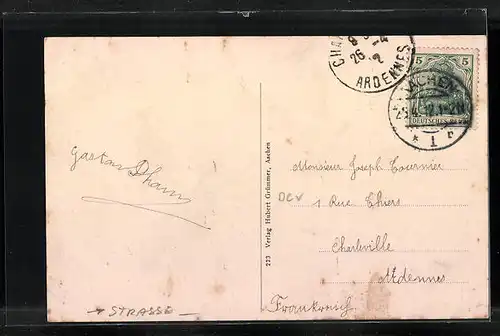 CHA
26 2
ARDENNES
5 5
AACHEN
DEUTSCHES REICH
* 1 r
Gaston Dham
Monsieur Joseph Tournier
DEV
1 Rue Thiers
Charleville
Ardennes
Frankreich
223 Verlag Hubert Grümmer, Aachen
STRASSE